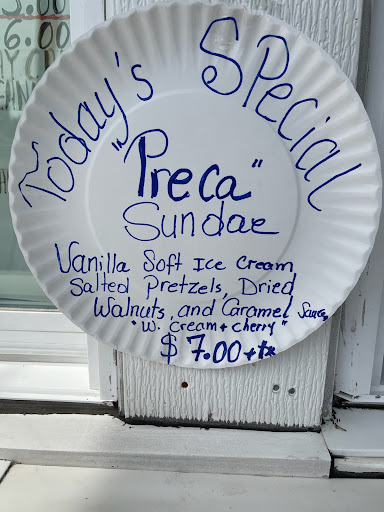 3.00
6.00
Today's Special
"Preca"
Sundae
Vanilla Soft Ice Cream
Salted Pretzels, Dried
Walnuts, and Caramel Sauce,
"W. Cream + Cherry"
$7.00 + tx